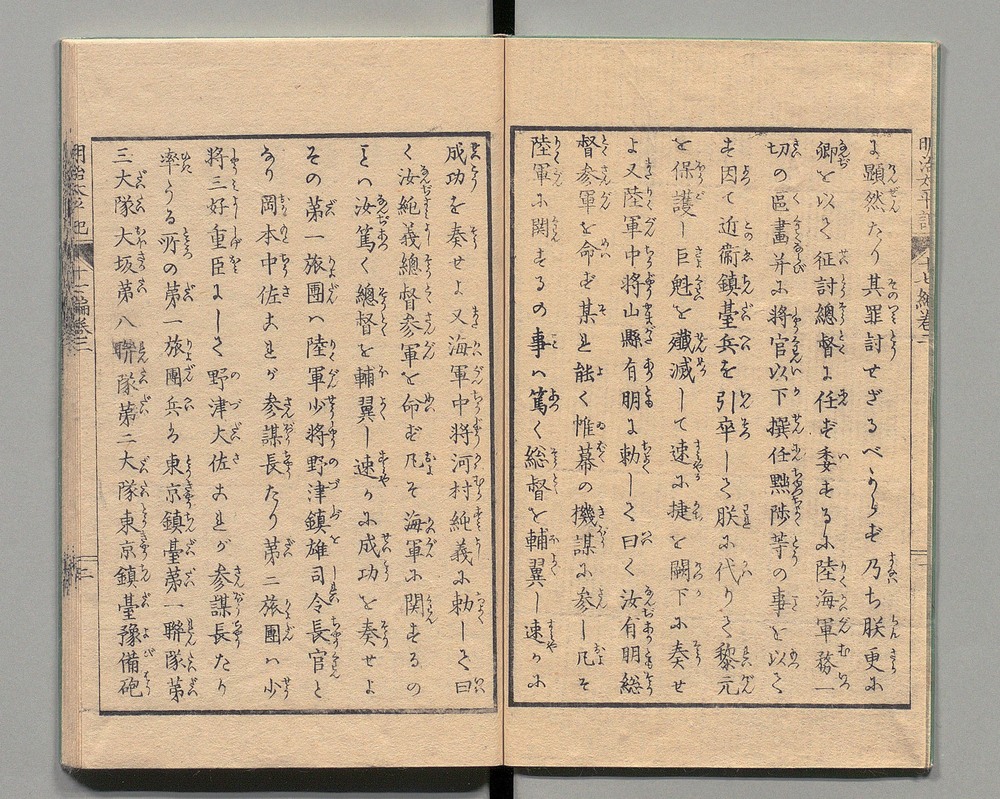 に顕然たり其罪討せざるべからず乃ち朕更に
卿を以て征討總督に任ず委するに陸海軍務一
切の區畫并に將官以下撰任黜陟等の事を以て
す因て近衞鎮臺兵を引率して朕に代りて黎元
を保護し巨魁を殲滅して速に捷を闕下に奏せ
よ又陸軍中将山縣有明に勅して曰く汝有明総
督参軍を命ず某れ能く帷幕の機謀に参し凡そ
陸軍に関するの事ハ篤く総督を輔翼し速かに
成功を奏せよ又海軍中将河村純義に勅して曰
く汝純義總督参軍を命ず凡そ海軍に関するの
事ハ汝篤く總督を輔翼し速かに成功を奏せよ
その第一旅團ハ陸軍少将野津鎮雄司令長官と
なり岡本中佐これが参謀長たり第二旅團ハ少
将三好重臣にして野津大佐これが参謀長たり
率うる所の第一旅團兵ハ東京鎮臺第一聯隊第
三大隊大坂第八聯隊第二大隊東京鎮臺豫備砲
明治太平記
十七編巻二